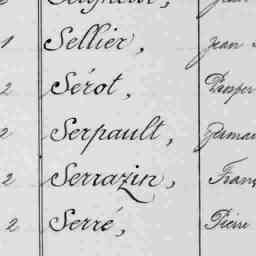 1 Sellier, Jean
2 Sérot, Prosper
2 Serpault,
2 Serrazin, Franç
2 Serré, Pierre